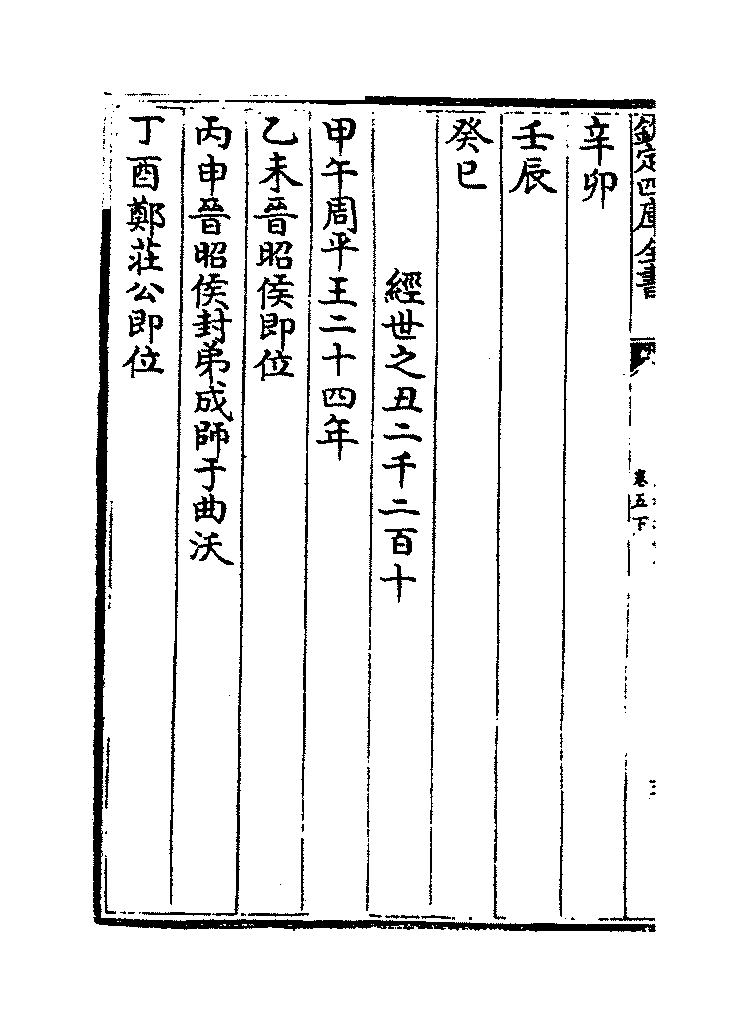 欽定四庫全書
卷五下
辛卯
壬辰
癸巳
經世之丑二千二百十
甲午周平王二十四年
乙未晉昭侯即位
丙申晉昭侯封弟成師于曲沃
丁酉鄭莊公即位